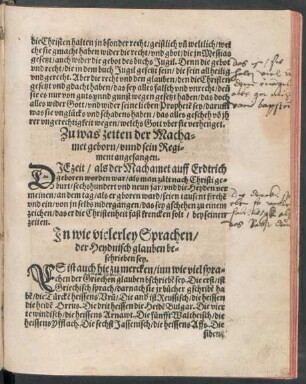 die Christen halten in bsonder recht/ geistlich vñ weltlich/ wel
che sie gmacht haben wider die recht/ vnd gbot/ die jn Messias
gesetzt/ auch wider die gebot des buchs Jugil. Denn die gebot
vnd recht/ die in dem buch Jugil gesetzt sein/ die sein all heilig
vnd gerecht. Aber die recht vnd den glauben/ die die Christen
gesetzt vnd gdacht haben/ das sey alles falsch vnd vnrecht/ deñ
sie es nur von guts vnnd gunst wegen gesetzt haben/ das doch
alles wider Gott/ vnd wider seine lieben Prophet sey/ darumb
was sie vnglück vnd schadens haben/ das alles geschech vō jh
rer vngerechtigkeit wegen/ welchs Gott vber sie verhenget.
Zu was zeiten der Macha-
met geborn/ vnnd sein Regi-
ment angefangen.
DJE zeit/ als der Machamet auff Erdtrich
geborn worden war/ als man zalt nach Christi ge-
burt/ sechshundert vnd neun jar/ vnd die Heyden ver
meinen/ an dem tag/ als er gborn ward/ seien tausent kirchē
vnd ein/ von jn selbs nidergangen/ das sey gschehen zu einem
zeichen/ das er die Christenheit fast krencken solt/ bey seinen
zeiten.
In wie vielerley Sprachen/
der Heydnisch glauben be-
schrieben sey.
ES ist auch hie zu mercken/ inn wie viel spra-
chen der Griechen glauben bschrieben sey. Die erst/ ist
Griechisch sprach/ darnach sie jr bücher gschribē ha
bē/ die Türckē heissens Vrū/ Die and ist Reussisch/ die heissen
die heidē Orrus. Die drit heissen die Heidē Bulgar. Die vier
te windisch/ die heissens Arnawt. Die fünfft Walhisch/ die
heissens Yfflach. Die sechst Jassenisch/ die heissens Affs. Die
sibend